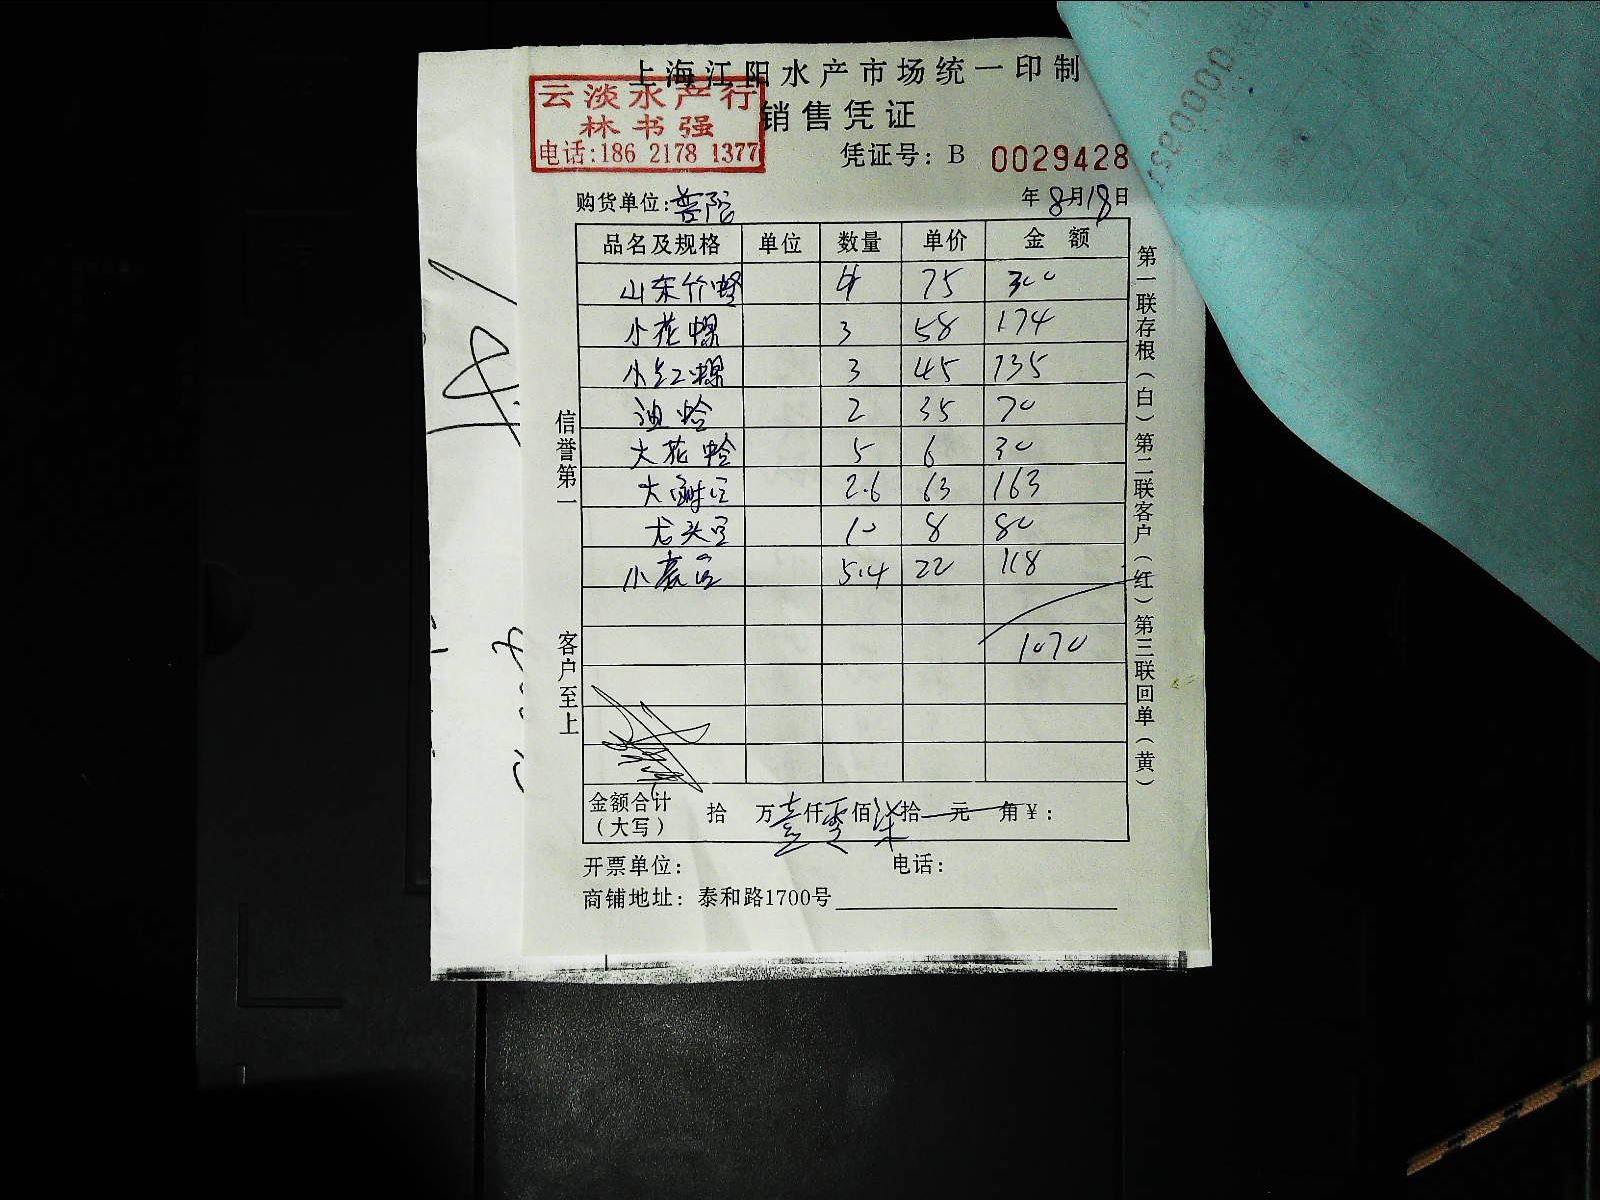 上海江阳水产市场统一印制
云淡水产行
林书强
电话:186 2178 1377
销售凭证
凭证号: B 0029428
购货单位: 普陀 年 8月18日
品名及规格 单位 数量 单价 金额
山东竹蛏 4 75 300
小花螺 3 58 174
小红螺 3 45 135
油蛤 2 35 70
大花蛤 5 6 30
大 2.6 63 163
龙头 10 8 80
小 5.4 22 118
1070
金额合计(大写) 拾 万壹仟零佰柒拾 元 角¥:
开票单位: 电话:
商铺地址: 泰和路1700号
信誉第一
客户至上
第一联存根(白)第二联客户(红)第三联回单(黄)